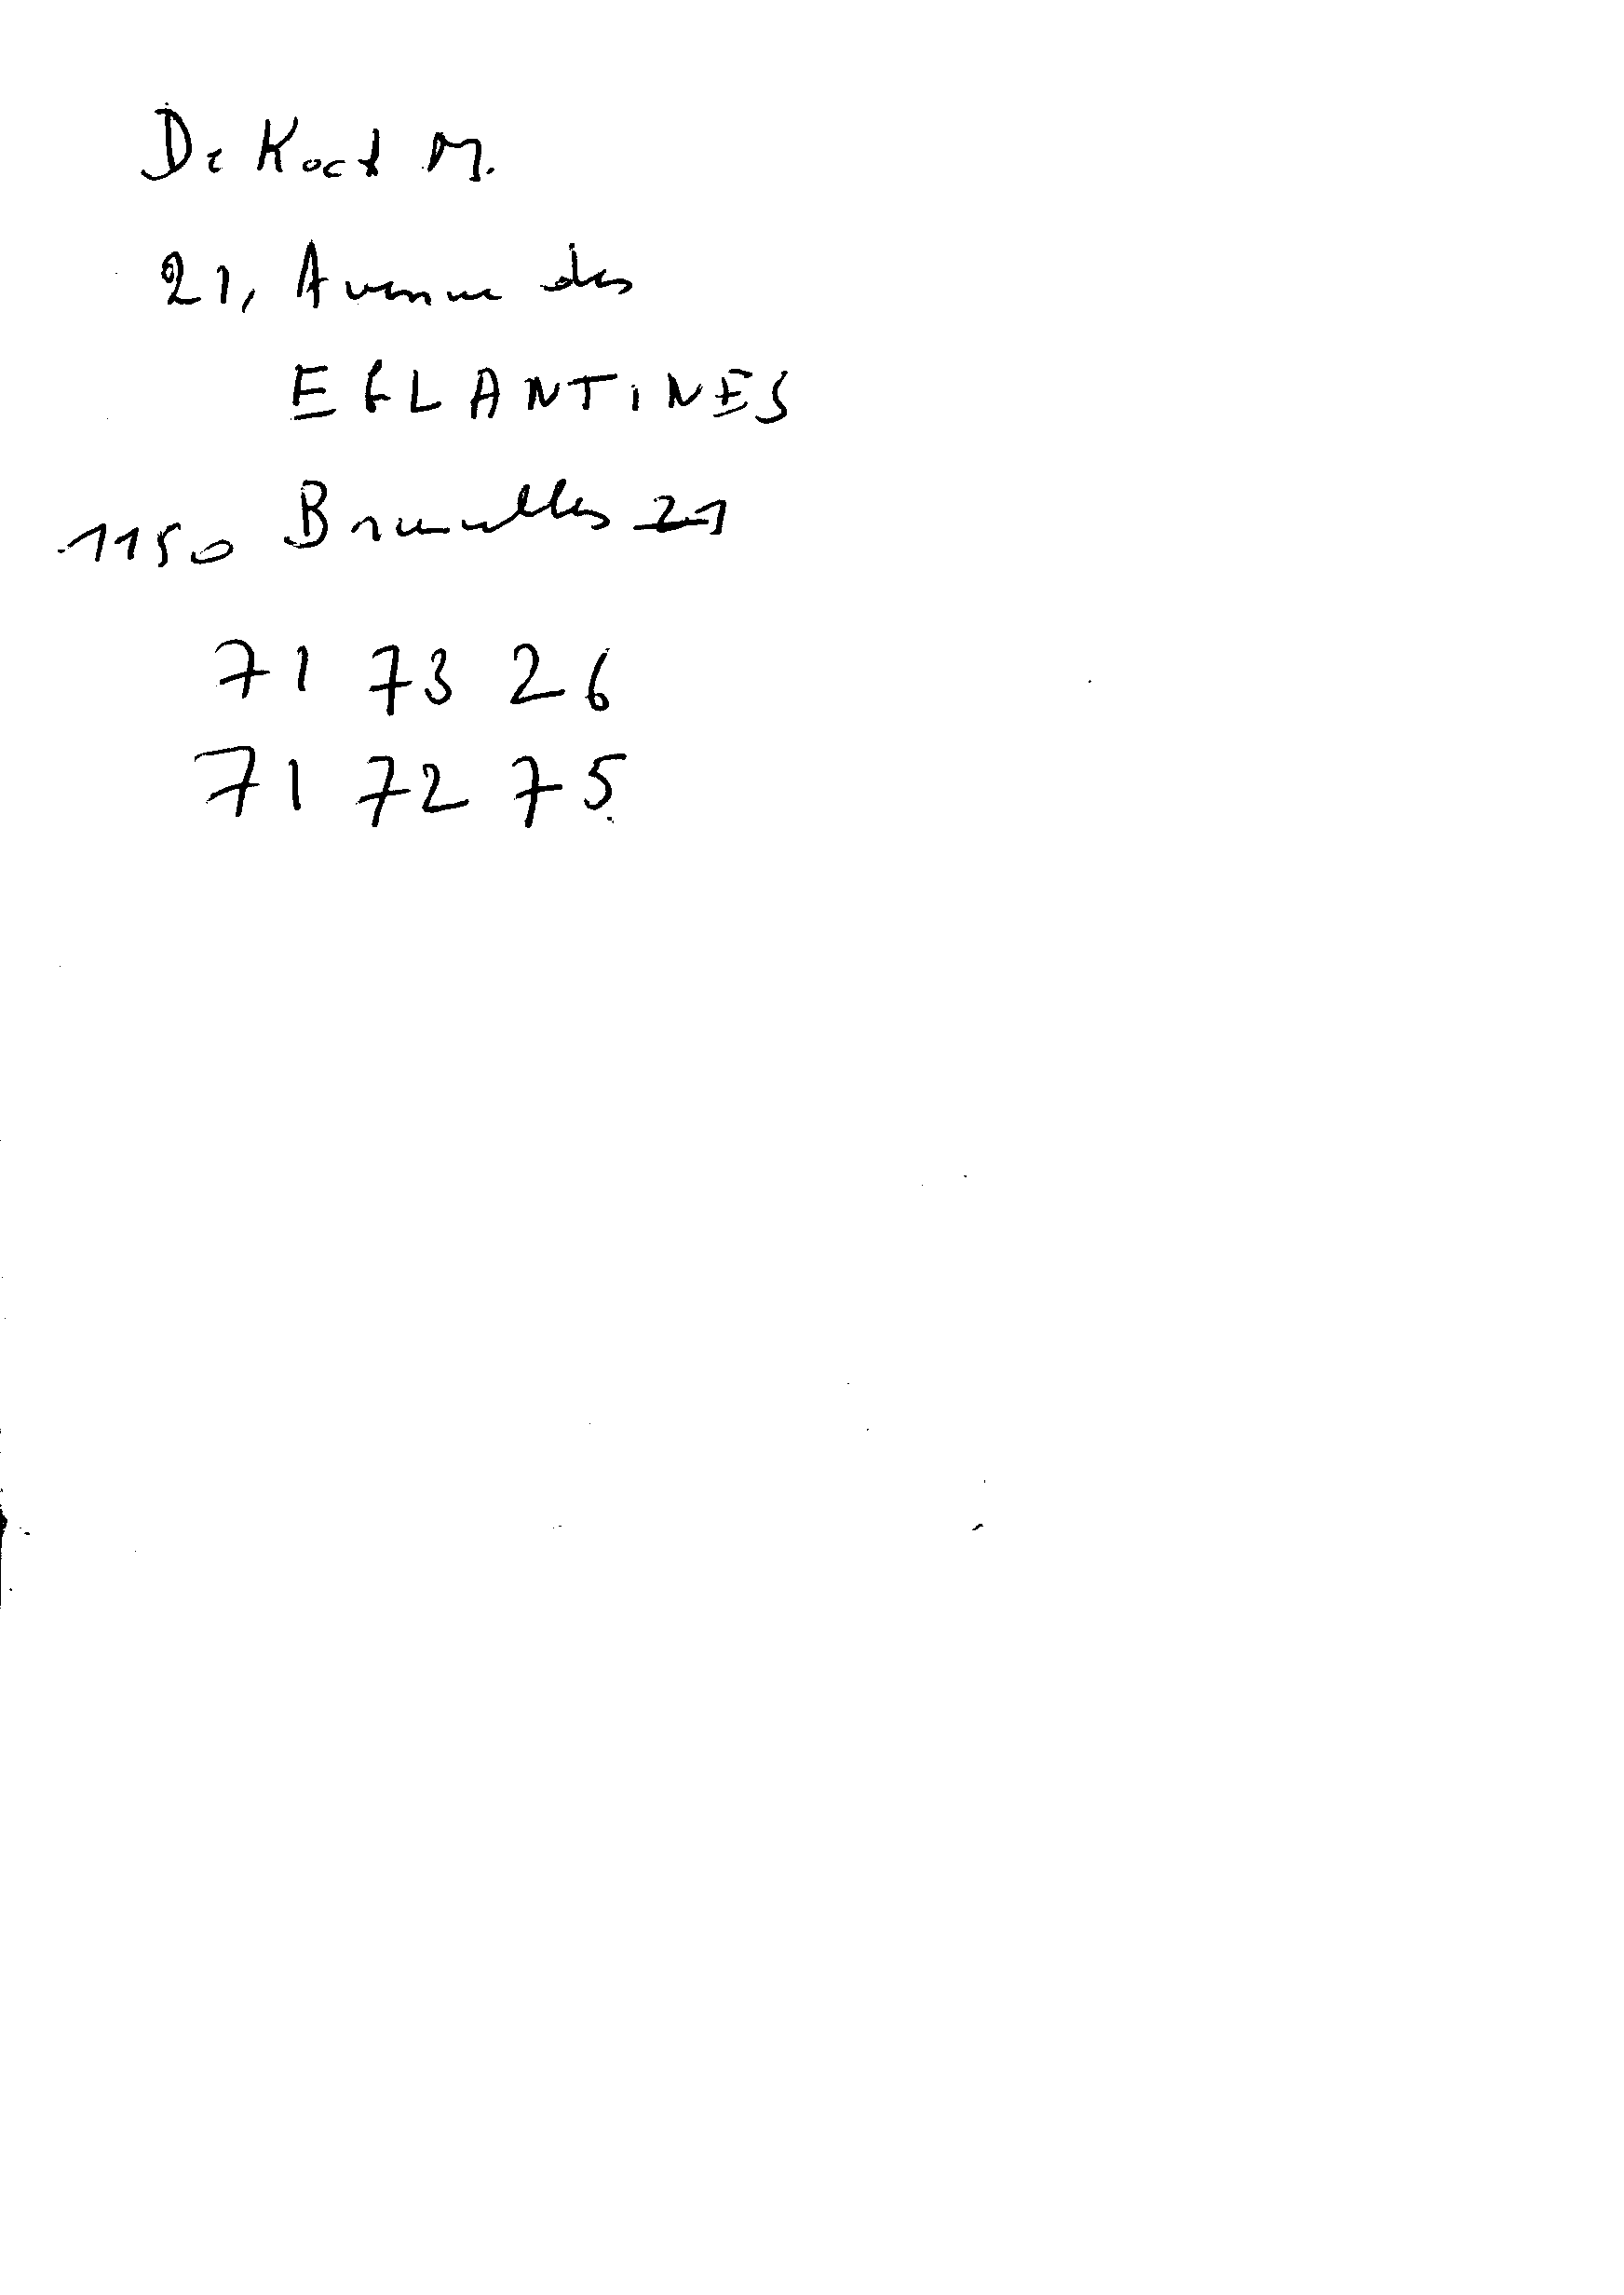 De Kock M.
21, Avenue des
EGLANTINES
1150 Bruxelles 21
71 73 26
71 72 75